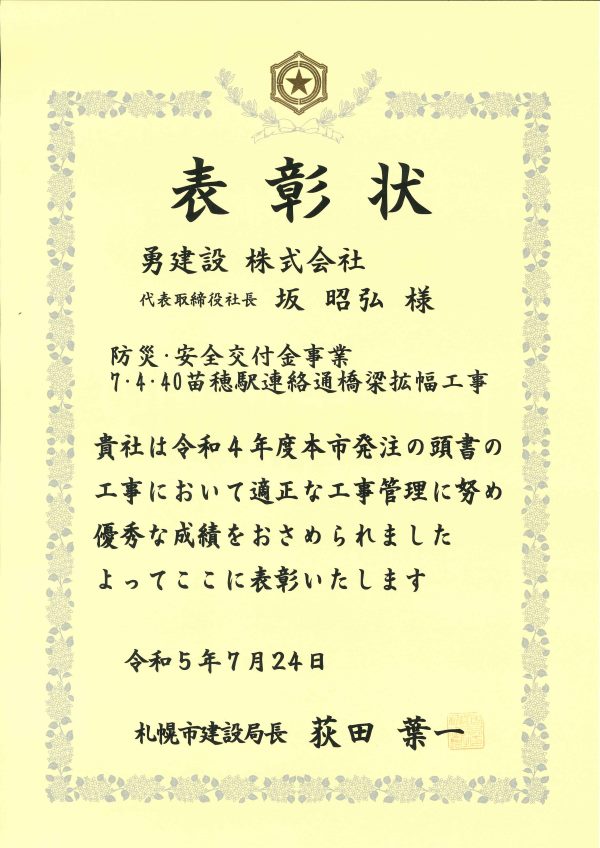 表彰状
勇建設 株式会社
代表取締役社長 坂 昭弘 様
防災・安全交付金事業
7・4・40苗穂駅連絡通橋梁拡幅工事
貴社は令和4年度本市発注の頭書の
工事において適正な工事管理に努め
優秀な成績をおさめられました
よってここに表彰いたします
令和5年7月24日
札幌市建設局長 荻田 葉一